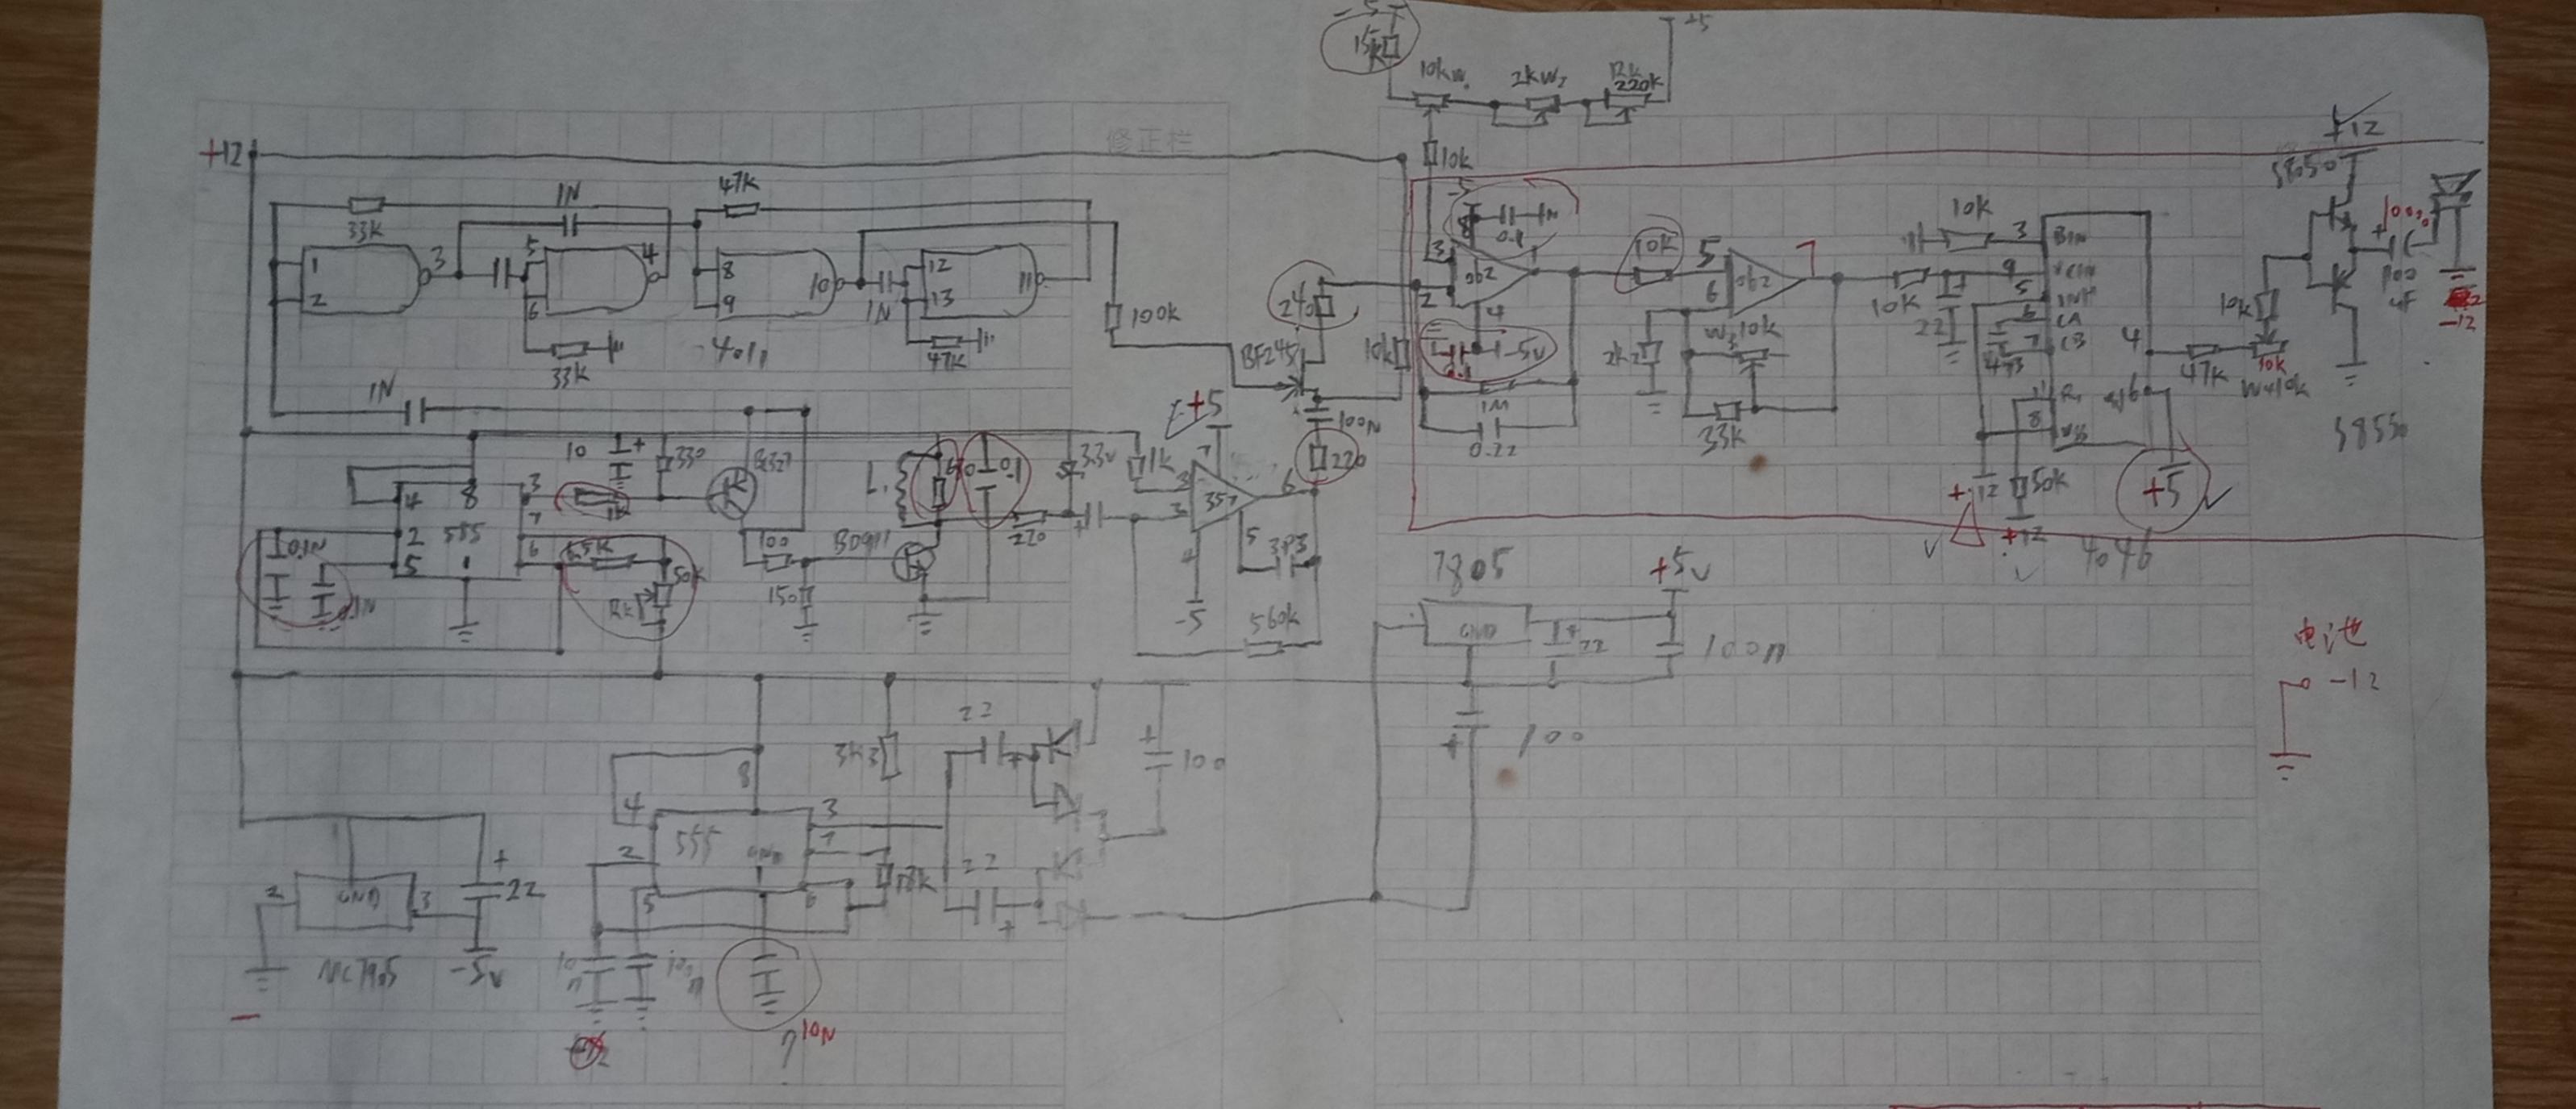 -5
15k
+5
10kW1
2kW2
12k
220k
+12
修正栏
10k
+12
S8050
33k
1N
47k
1
2
3
5
6
4
8
9
10
12
13
11
33k
4011
1N
47k
100k
1N
240
BF245
10k
-5
8
0.1
3
2
062
1
4
-5v
0.1
1M
0.22
10k
5
6
062
7
2k2
W3 10k
33k
10k
3
BIN
9
VCIN
5
INH
6
CA
7
CB
473
11
R1
8
VSS
10k
22
4
16
47k
10k
10k
W4 10k
100
uF
-12
S8550
+12
50k
+12
+5
4046
10
+
330
L1
0.1
33v
1k
+5
7
357
6
100N
220
4
8
3
7
555
2
5
6
1
0.1N
1k
50k
100
150
BD911
220
4
-5
5
3P3
560k
7805
GND
+5v
22
100n
电池
-12
100
3k3
22
100
8
4
3
2
555
7
GND
5
6
18k
22
2
GND
3
+
22
MC7905
-5v
10
n
100
n
10N
?